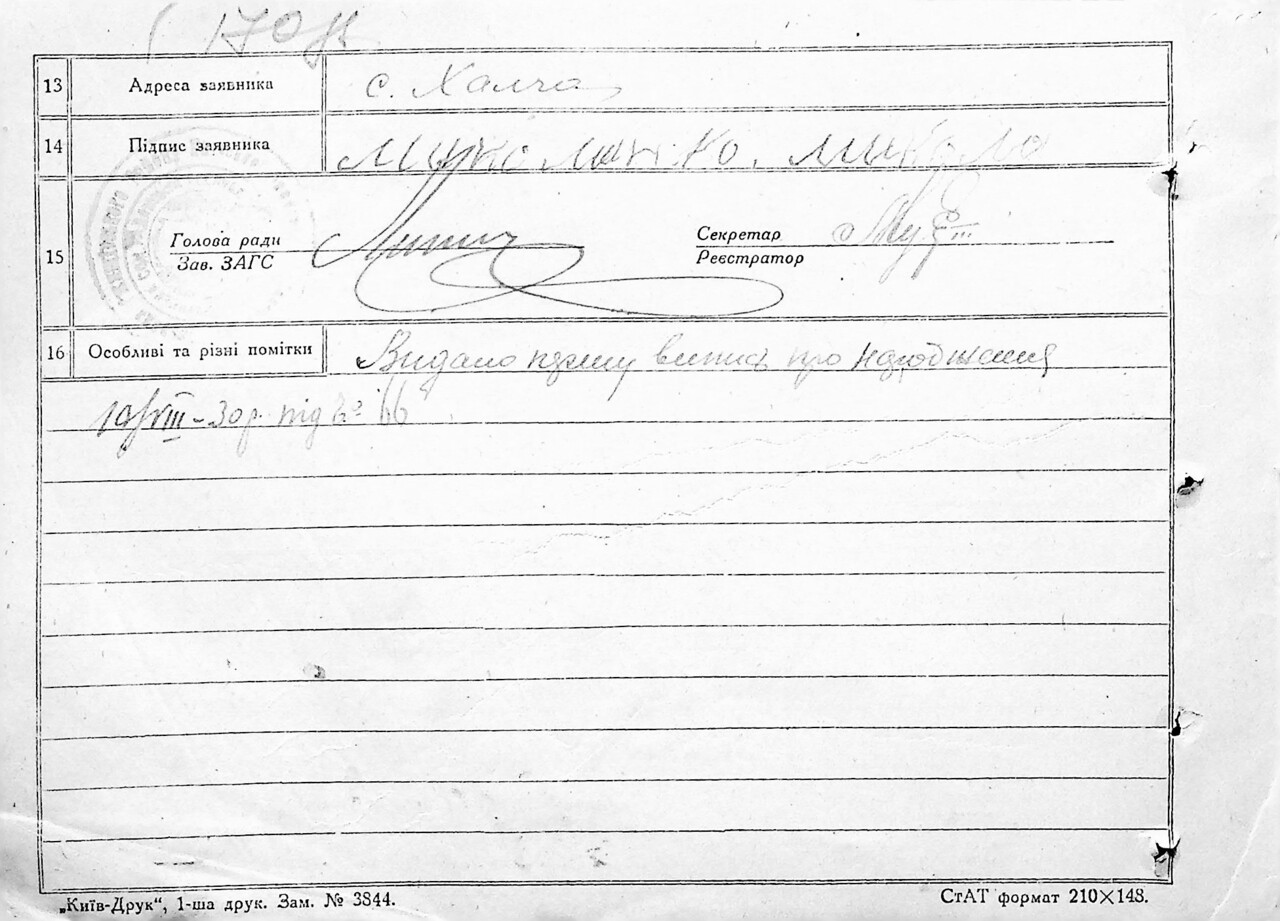 13 Адреса заявника с. Халча
14 Підпис заявника Микола
15 Голова ради Секретар
Зав. ЗАГС Реєстратор
16 Особливі та різні помітки Видано першу випись про народження
19/VIII-30р. під № 66
„Київ-Друк“, 1-ша друк. Зам. № 3844. СтАТ формат 210×148.